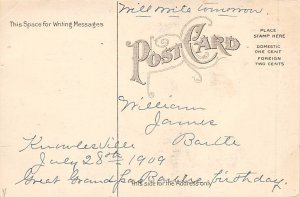 Will write tomorrow
This Space for Writing Messages
POST CARD
PLACE
STAMP HERE
DOMESTIC
ONE CENT
FOREIGN
TWO CENTS
William
James
Knowlesville
July 28th 1909
Great Grandpa birthday.
This side for the Address only